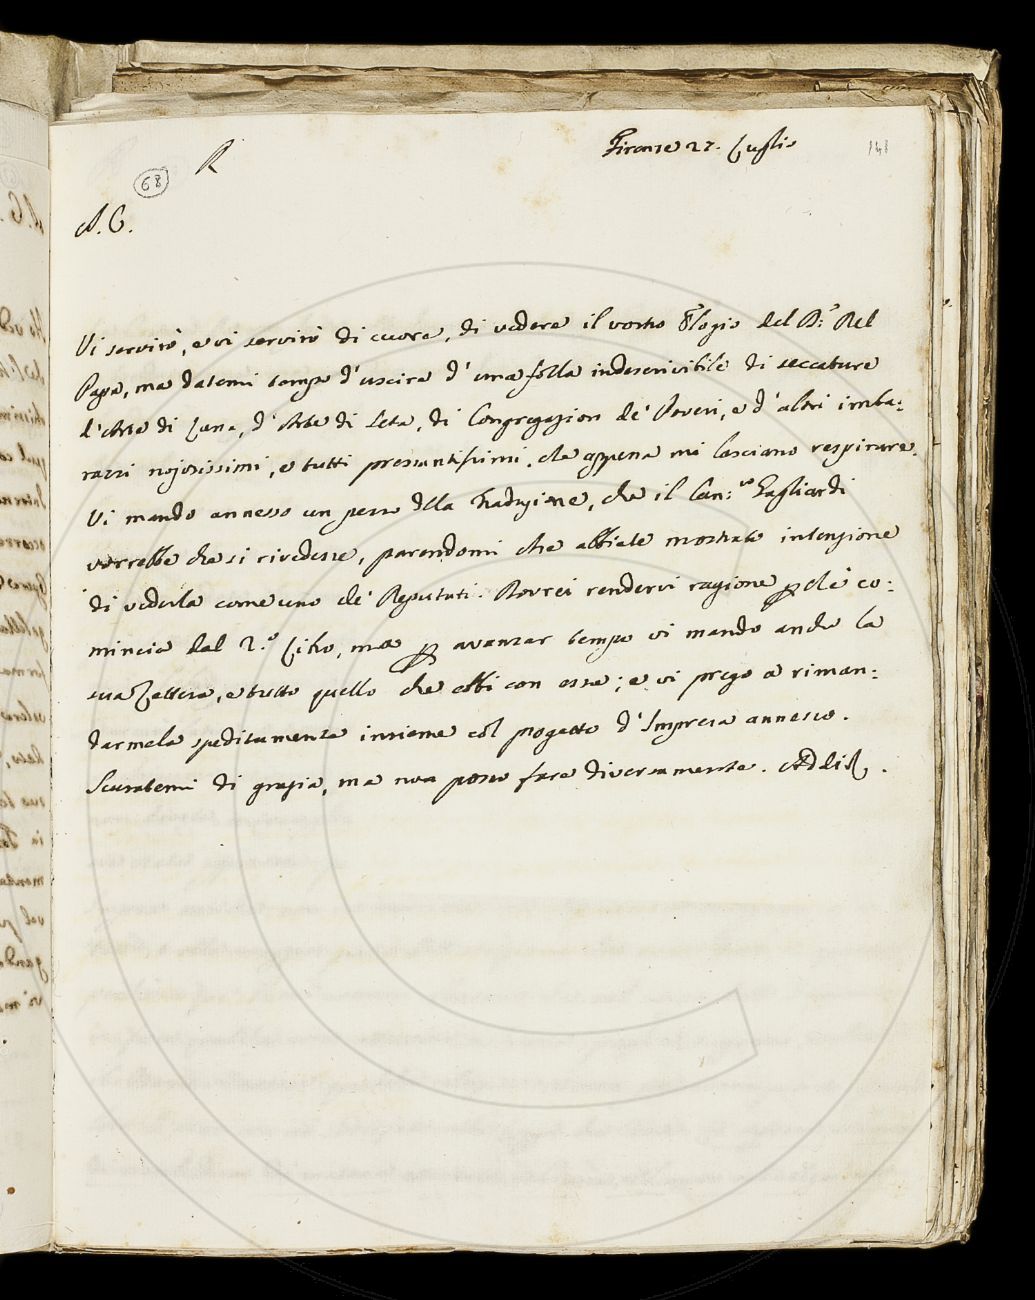 Firenze 27. Luglio
148
R
68
A. C.
Vi servirò, e vi servirò di cuore, di vedere il vostro Elogio del D.r Del
Papa, ma datemi tempo d'uscire d'una folla indescrivibile di seccature
d'Arte di Lana, d'Arte di Seta, di Congregazion de' Poveri, e d'altri imba:
razzi nojosissimi, e tutti pressantissimi, che appena mi lasciano respirare.
Vi mando annesso un pezzo della Traduzione, che il Can:co Gagliardi
vorrebbe che si rivedesse, parendomi che abbiate mostrato intenzione
di vederla come uno de' Deputati. Dovrei rendervi ragione perché co:
mincia dal 2.o Libro, ma per avanzar tempo vi mando anche la
sua Lettera, e tutto quello che ebbi con essa; e vi prego a riman:
darmela speditamente insieme col progetto d'Impresa annesso.
Scusatemi di grazia, ma non posso fare diversamente. Addio.